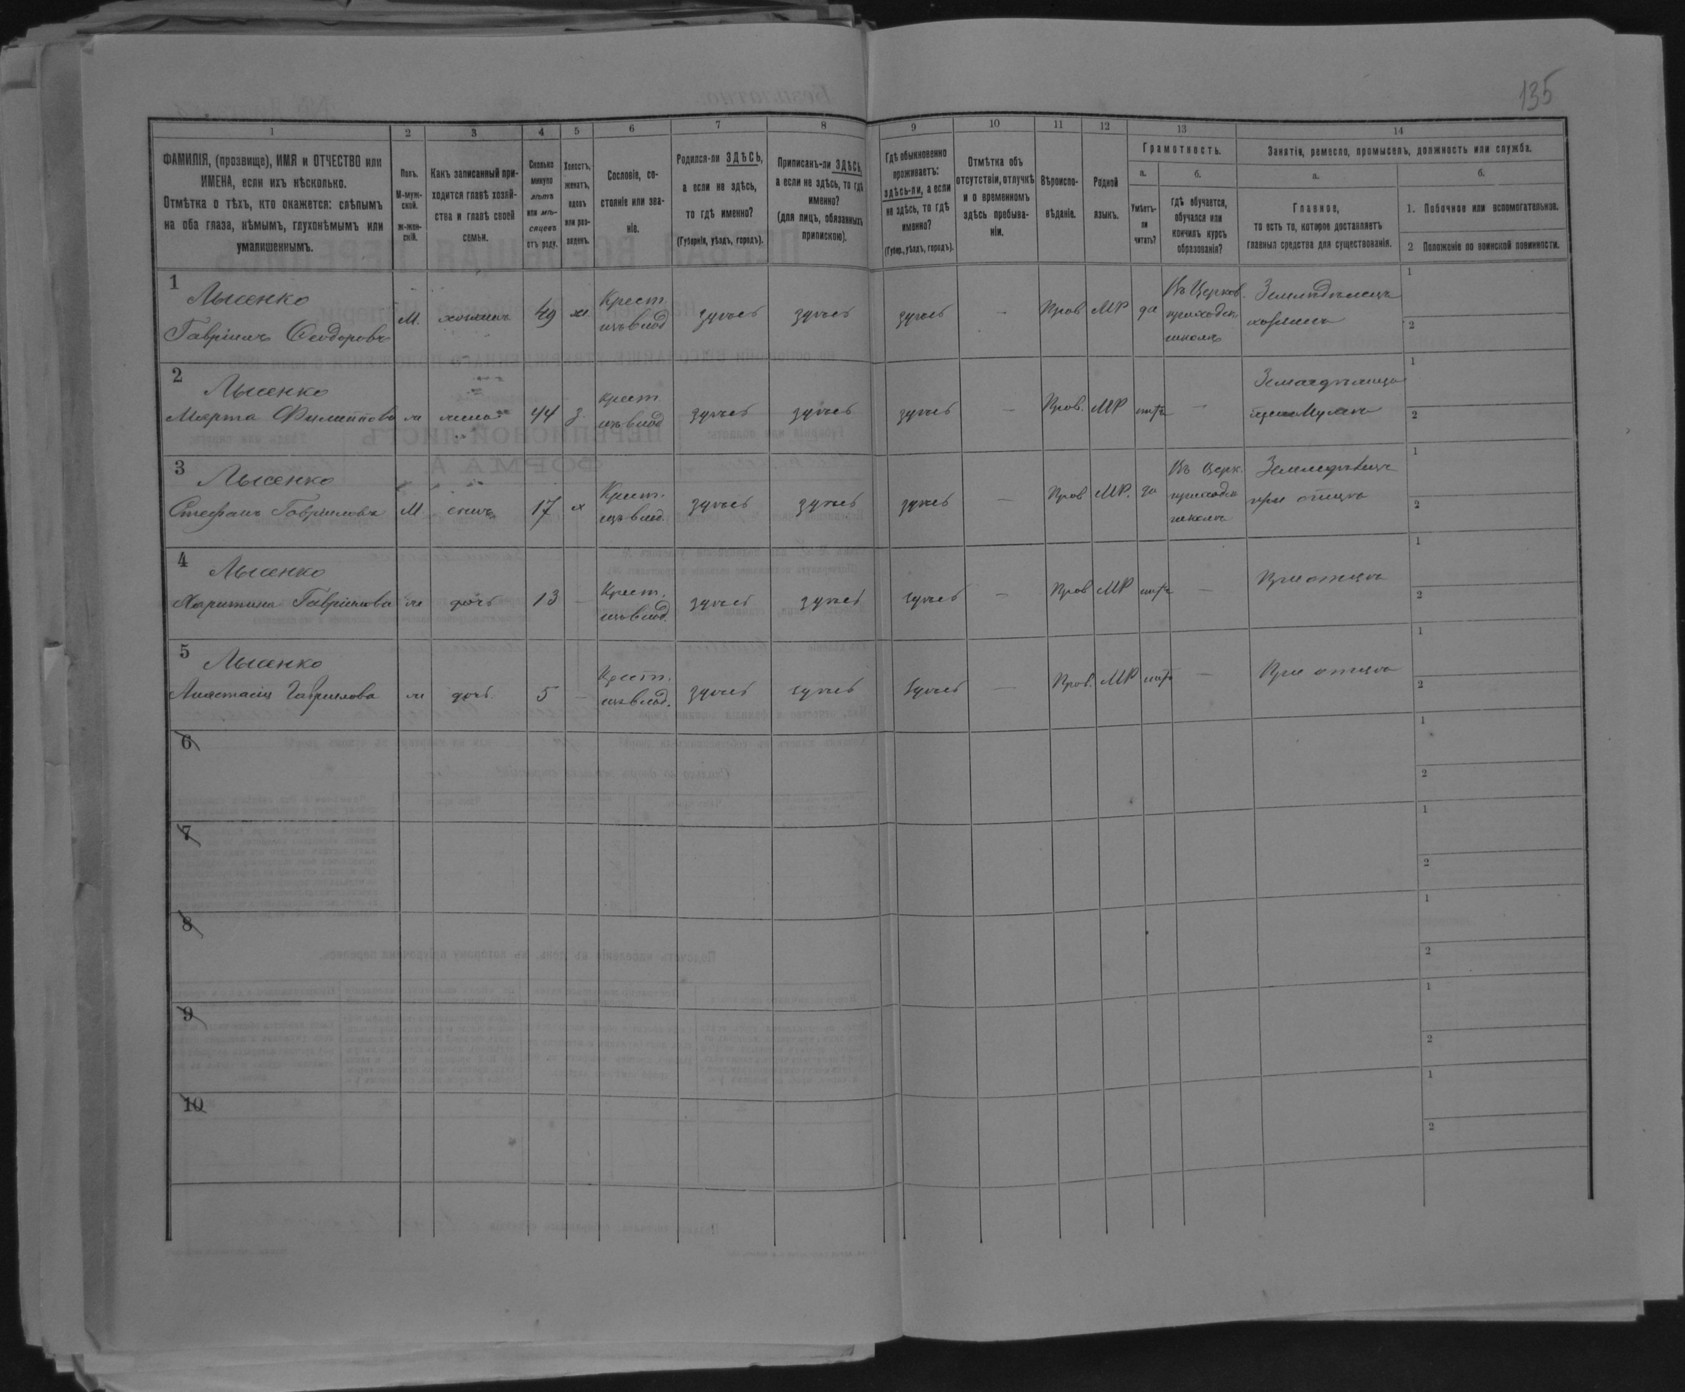 135
1
2
3
4
5
6
7
8
9
10
11
12
13
14
ФАМИЛІЯ, (прозвище), ИМЯ и ОТЧЕСТВО или
ИМЕНА, если ихъ нѣсколько.
Отмѣтка о тѣхъ, кто окажется: слѣпымъ
на оба глаза, нѣмымъ, глухонѣмымъ или
умалишеннымъ.
Полъ.
М-муж-
ской.
Ж-жен-
скій.
Какъ записанный при-
ходится главѣ хозяй-
ства и главѣ своей
семьи.
Сколько
минуло
лѣтъ
или мѣ-
сяцевъ
отъ роду.
Холостъ,
женатъ,
вдовъ
или раз-
веденъ.
Сословіе, со-
стояніе или зва-
ніе.
Родился-ли ЗДѢСЬ,
а если не здѣсь,
то гдѣ именно?
(Губернія, уѣздъ, городъ).
Приписанъ-ли ЗДѢСЬ,
а если не здѣсь, то гдѣ
именно?
(для лицъ, обязанныхъ
припискою).
Гдѣ обыкновенно
проживаетъ:
здѣсь-ли, а если
не здѣсь, то гдѣ
именно?
(Губер., уѣздъ, городъ).
Отмѣтка объ
отсутствіи, отлучкѣ
и о временномъ
здѣсь пребыва-
ніи.
Вѣроиспо-
вѣданіе.
Родной
языкъ.
Грамотность.
а.
Умѣетъ-
ли
читать?
б.
гдѣ обучается,
обучался или
кончилъ курсъ
образованія?
Занятіе, ремесло, промыселъ, должность или служба.
а.
Главное,
то есть то, которое доставляетъ
главныя средства для существованія.
б.
1. Побочное или вспомогательное.
2 Положеніе по воинской повинности.
1
Лысенко
Гавріилъ Ѳеодоровъ
М.
хозяинъ
49
ж
Крест.
изъ влад
здѣсь
здѣсь
здѣсь
—
Прав
МР
да
Въ Церков.
приходск
школѣ
Земледѣлецъ
хозяинъ
1
2
2
Лысенко
Марта Филиппова
ж
жена
44
з.
крест.
изъ влад
здѣсь
здѣсь
здѣсь
—
Прав.
МР
нѣтъ
—
Земледѣлица
при Мужѣ
1
2
3
Лысенко
Стефанъ Гавріиловъ
М
сынъ
17
х
Крест.
изъ влад.
здѣсь
здѣсь
здѣсь
—
Прав
МР.
да
Въ Церк.
приходск
школѣ
Земледѣлецъ
при отцѣ
1
2
4
Лысенко
Харитина Гавріилова
ж
дочь
13
—
Крест.
изъ влад.
здѣсь
здѣсь
здѣсь
—
Прав
МР
нѣтъ
—
При отцѣ
1
2
5
Лысенко
Анастасія Гавриилова
ж
дочь
5
—
Крест.
изъ влад.
здѣсь
здѣсь
здѣсь
—
Прав.
МР
нѣтъ
—
При отцѣ
1
2
6
1
2
7
1
2
8
1
2
9
1
2
10
1
2